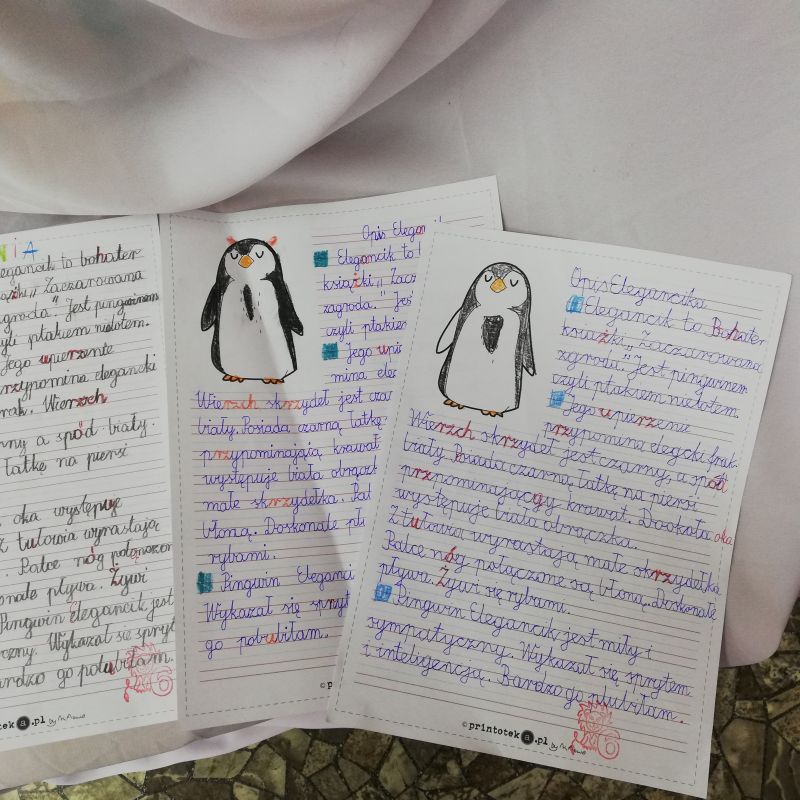 NIA
Elegancik to bohater
książki „Zaczarowana
zagroda." Jest pingwinem
czyli ptakiem nielotem.
Jego upierzenie
przypomina elegancki
frak. Wierzch
czarny a spód biały.
łatkę na piersi
oka występuje
Z tułowia wyrastają
Palce nóg połączone
pływa. Żywi
Pinguin Elegancik jest
Wykazał się spryt
Bardzo go polubiłam.
printotek a.pl by M.Mawo
Opis Elegan
Elegancik to b
książki „Zacz
zagroda." Jes
czyli ptakie
Jego upi
mina ele
Wierzch skrzydeł jest czar
biały. Posiada czarną łatkę
przypominającą krawat
występuje biała obrącz
małe skrzydełka. Pal
błoną. Doskonale pł
rybami.
Pingwin Eleganci
Wykazał się spryt
go polubiłam.
© p
Opis Elegancika
Elegancik to Bohater
książki „Zaczarowana
zagroda." Jest pingwinem
czyli ptakiem nielotem.
Jego upierzenie
przypomina elegcki frak.
Wierzch skrzydeł jest czarny, a spód
biały Posiada czarną łatkę na piersi
przpominającgy krawat. Dookoła oka
występuje biała obrączka.
Z tułowia wyrastają małe skrzydełka
Palce nóg połączone są błoną. Doskonale
pływa. Żywi się rybami.
Pingwin Elegancik jest miły i
sympatyczny. Wykazał się sprytem
i inteligencją. Bardzo go plubiłam.
© printotek a.pl by M.Mawo